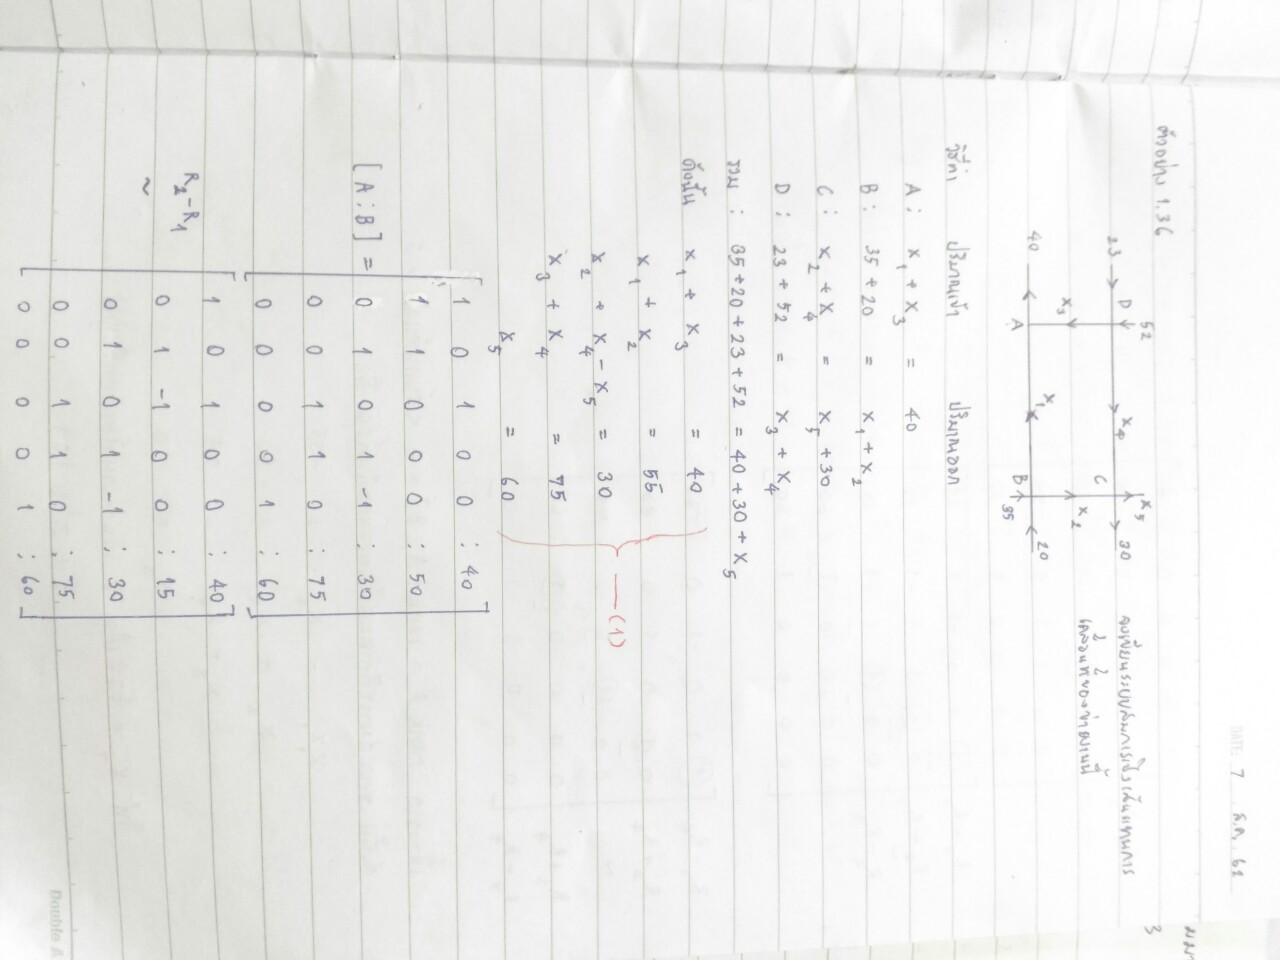 DATE: 7 ส.ค. 62
มมา
3
ตัวอย่าง 1.36
52
D
x₄
x₅
23
30
C
x₃
x₂
x₁
40
A
B
20
35
จงเขียนระบบสมการเชิงเส้นแทนการ
เคลื่อนที่ของข่ายงานนี้
วิธีทำ ปริมาณเข้า ปริมาณออก
A : x₁ + x₃ = 40
B : 35 + 20 = x₁ + x₂
C : x₂ + x₄ = x₅ + 30
D : 23 + 52 = x₃ + x₄
รวม : 35 + 20 + 23 + 52 = 40 + 30 + x₅
ดังนั้น x₁ + x₃ = 40
x₁ + x₂ = 55
x₂ + x₄ - x₅ = 30 —(1)
x₃ + x₄ = 75
x₅ = 60
1 0 1 0 0 : 40
1 1 0 0 0 : 50
[A : B] = 0 1 0 1 -1 : 30
0 0 1 1 0 : 75
0 0 0 0 1 : 60
1 0 1 0 0 : 40
R₂-R₁ ~ 0 1 -1 0 0 : 15
0 1 0 1 -1 : 30
0 0 1 1 0 : 75
0 0 0 0 1 : 60
Double A